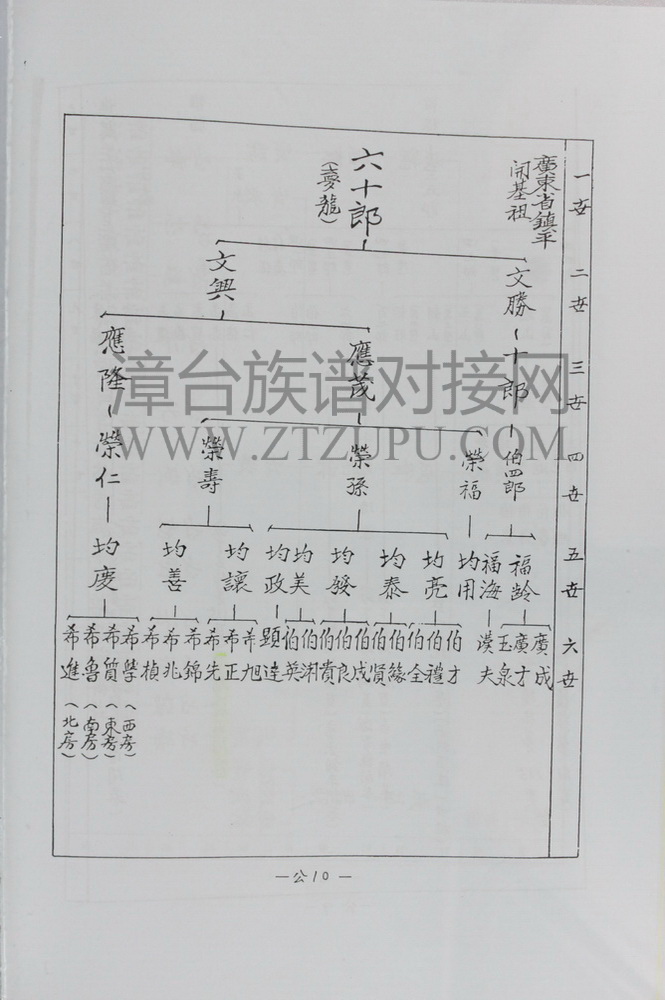 一世
二世
三世
四世
五世
六世
廣東省鎮平
開基祖
六十郎
(夢龍)
文勝
文興
十郎
應茂
應隆
伯四郎
榮福
榮孫
榮壽
榮仁
福齡
福海
均用
均亮
均泰
均發
均美
均政
均讓
均善
均慶
廣成
廣才
玉泉
漢夫
伯才
伯禮
伯全
伯緣
伯賢
伯成
伯良
伯貴
伯英
顕達
希旭
希正
希先
希錦
希兆
希楨
希學
(西房)
希質
(東房)
希魯
(南房)
希進
(北房)
—公10—
漳台族谱对接网
WWW.ZTZUPU.COM